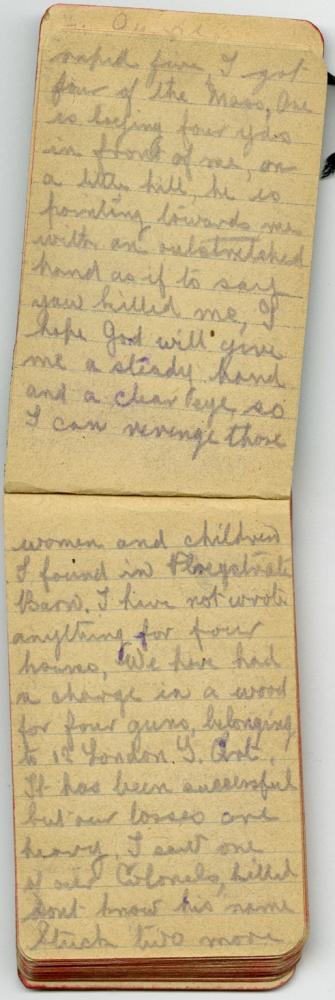 rapid fire, I got
four of the Mass, One
is laying four yds
in front of me, on
a little hill, he is
pointing towards me
with an outstretched
hand as if to say
you killed me, I
hope God will give
me a steady hand
and a clear eye so
I can revenge those
women and children
I found in
Barn. I have not wrote
anything for four
hours, We have had
a charge in a wood
for four guns, belonging
to London
It has been successful
but our losses are
heavy, I saw one
of our Colonels, killed
dont know his name
Stuck two more